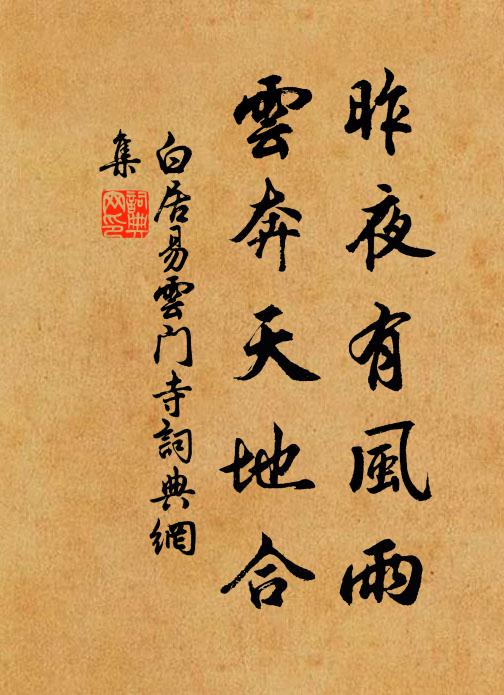 昨夜有風雨
雲奔天地合
白居易雲門寺詞典網
集
詞典
网印